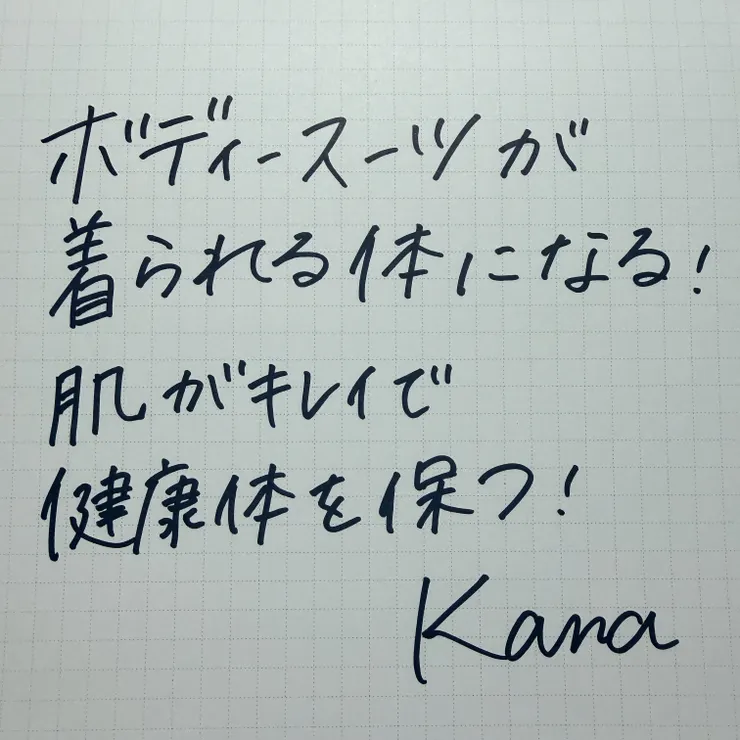 ボディースーツが
着られる体になる!
肌がキレイで
健康体を保つ!
Kana